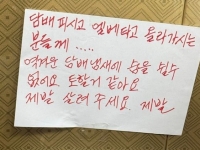 담배 피시고 엘베타고 올라가시는
분들께 .....
역겨운 담배 냄새에 숨을 쉴수
없어요 토할거 같아요
제발 살려 주세요. 제발